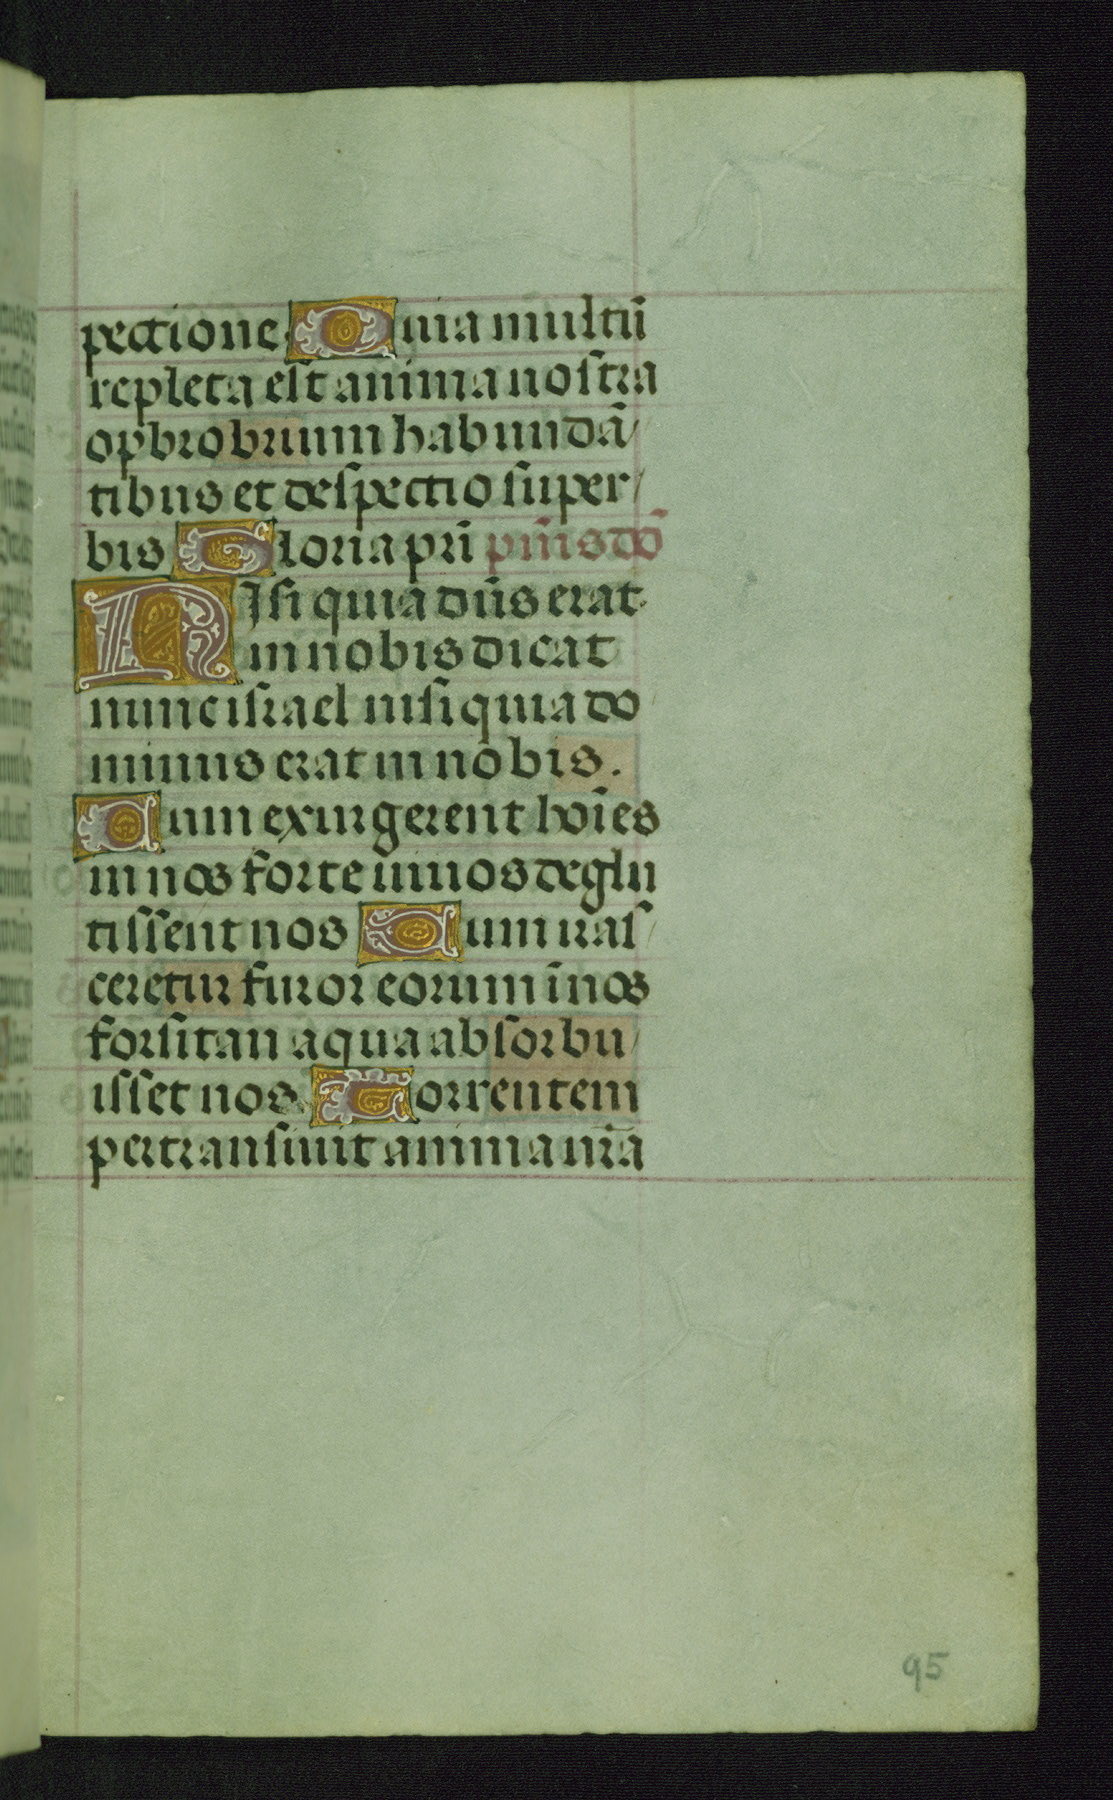 pectione Quia multū
repleta est anima nostra
opbrobrium habundā/
tibus et despectio super/
bis Gloria pr̄i p̄m̄is dō
Nisi quia dn̄s erat
in nobis dicat
nunc israel nisi quia do
minus erat in nobis.
Cum exurgerent hoīes
in nos forte uiuos deglu
tissent nos Cum iras/
ceretur furor eorum ī nos
forsitan aqua absorbu/
isset nos Torrentem
pertransiuit anima nr̄a
95